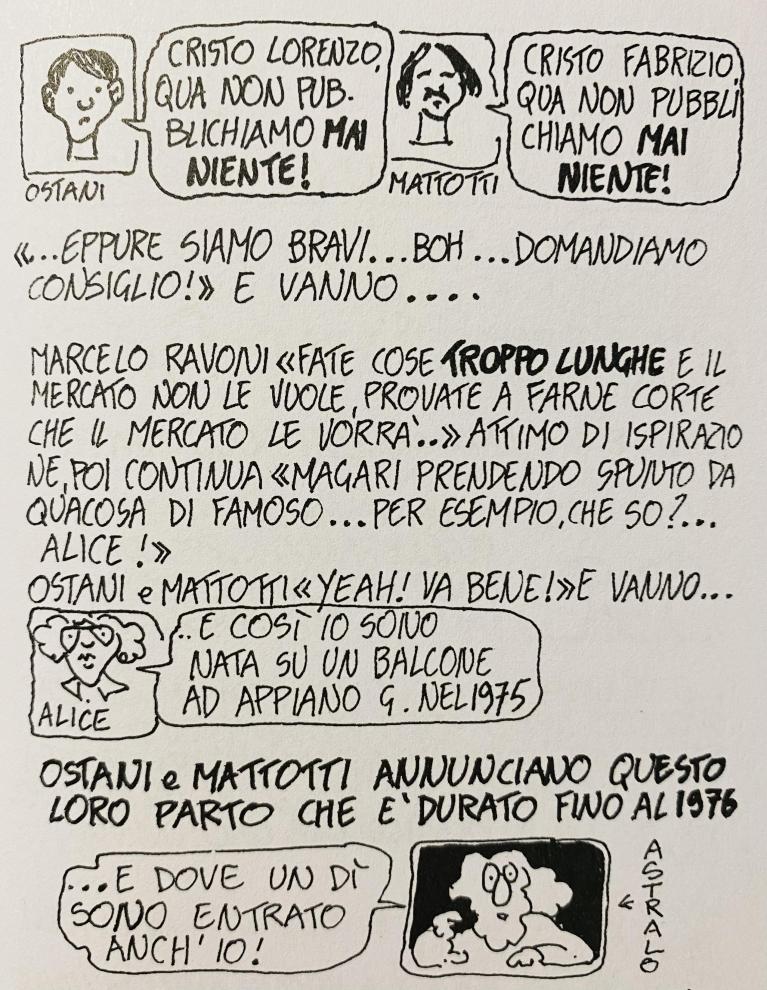 CRISTO LORENZO,
QUA NON PUB-
BLICHIAMO MAI
NIENTE!
OSTANI
CRISTO FABRIZIO,
QUA NON PUBBLI
CHIAMO MAI
NIENTE!
MATTOTTI
«...EPPURE SIAMO BRAVI...BOH...DOMANDIAMO
CONSIGLIO!» E VANNO....
MARCELO RAVONI «FATE COSE TROPPO LUNGHE E IL
MERCATO NON LE VUOLE, PROVATE A FARNE CORTE
CHE IL MERCATO LE VORRA'..» ATTIMO DI ISPIRAZIO
NE, POI CONTINUA «MAGARI PRENDENDO SPUNTO DA
QUACOSA DI FAMOSO...PER ESEMPIO, CHE SO?...
ALICE!»
OSTANI e MATTOTTI «YEAH! VA BENE!» E VANNO...
..E COSÌ IO SONO
NATA SU UN BALCONE
AD APPIANO G. NEL 1975
ALICE
OSTANI e MATTOTTI ANNUNCIANO QUESTO
LORO PARTO CHE E' DURATO FINO AL 1976
...E DOVE UN DÌ
SONO ENTRATO
ANCH'IO!
ASTRALO